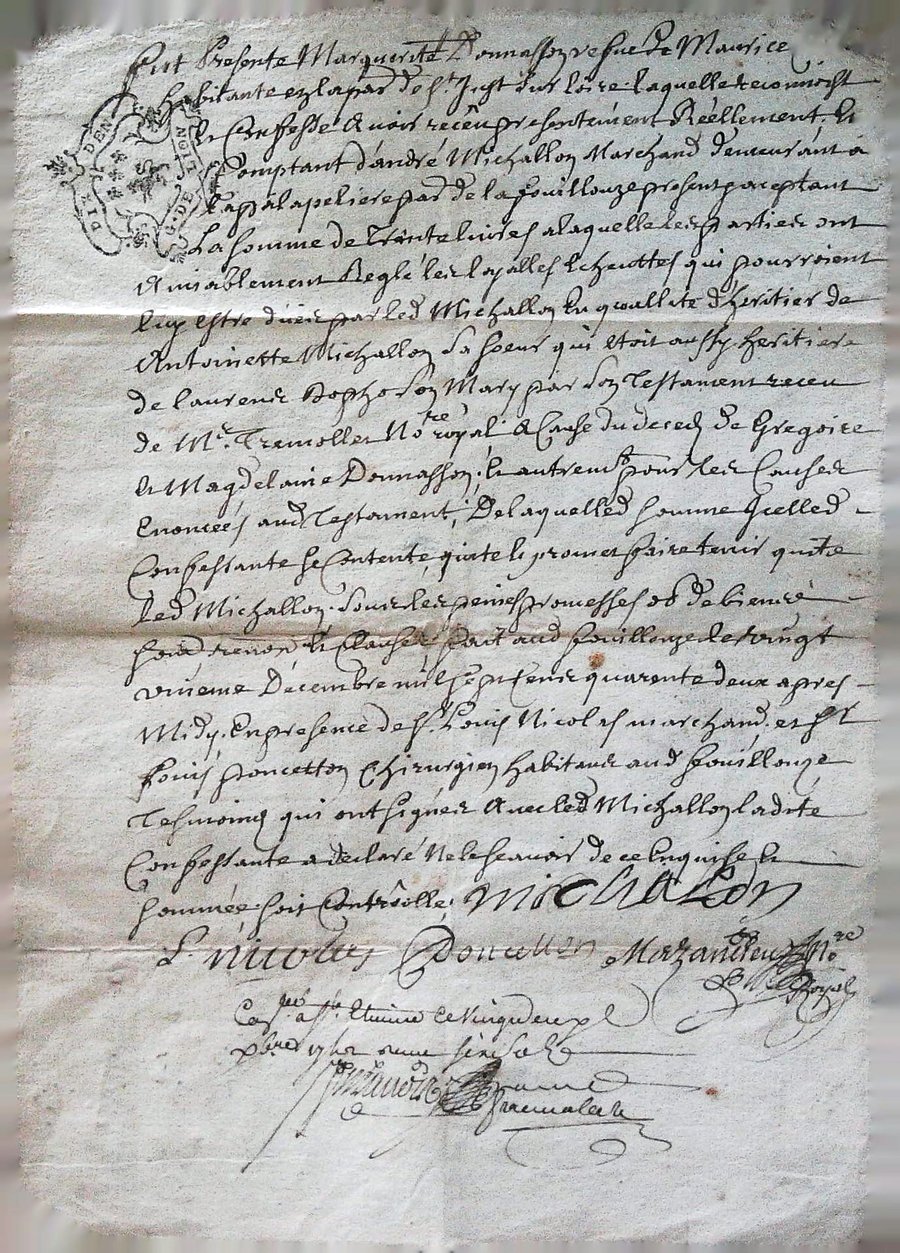 Fut Presente Margueritte Donnasson vefue de Maurice
habitante en la par de st Just sur loire. laquelle reconnoist
Et Confesse Avoir recêu presentement Réellement Et
Comptant d'andré Michallon Marchand demeurant a
la par de la fouillouze present acceptant
La somme de Trente livres a laquelle les parties ont
Amiablement Reglé les qui pourroient
luy Estre dües par led Michallon En quallité d'heritier de
Antoinette Michallon Sa soeur qui Etoit aussy heritiere
de laurens Son Mary par Son Testament receu
de Me Tramollet Nore royal A Cause du deced de Gregoire
Et Magdelaine Donnasson Et autremt pour les Causes
Enoncées aud Testament, De laquelled somme Icelled
Confessante se Contente, quite Et promet faire tenir quite
Led Michallon. Sous les peines promesses de biens
renon Et Clauses fait aud fouillouze le vingt
unieme Decembre mil sept cens quarente deux apres
Midy. En presence de sr Louis Nicolas marchand. et sr
Louis poncetton Chirurgien habitans aud fouillouze
Tesmoins qui ont signés Avec led Michallon ladite
Confessante a declaré Ne le scavoir de ce Enquise Et
sommée. soit Contrôollé. Michalon
L. nicolas Poncetton Mazandieu Nore
Royal
a st Etienne le vingt deux
xbre 1742